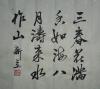 三春花满
香如海八
月涛来水
作山